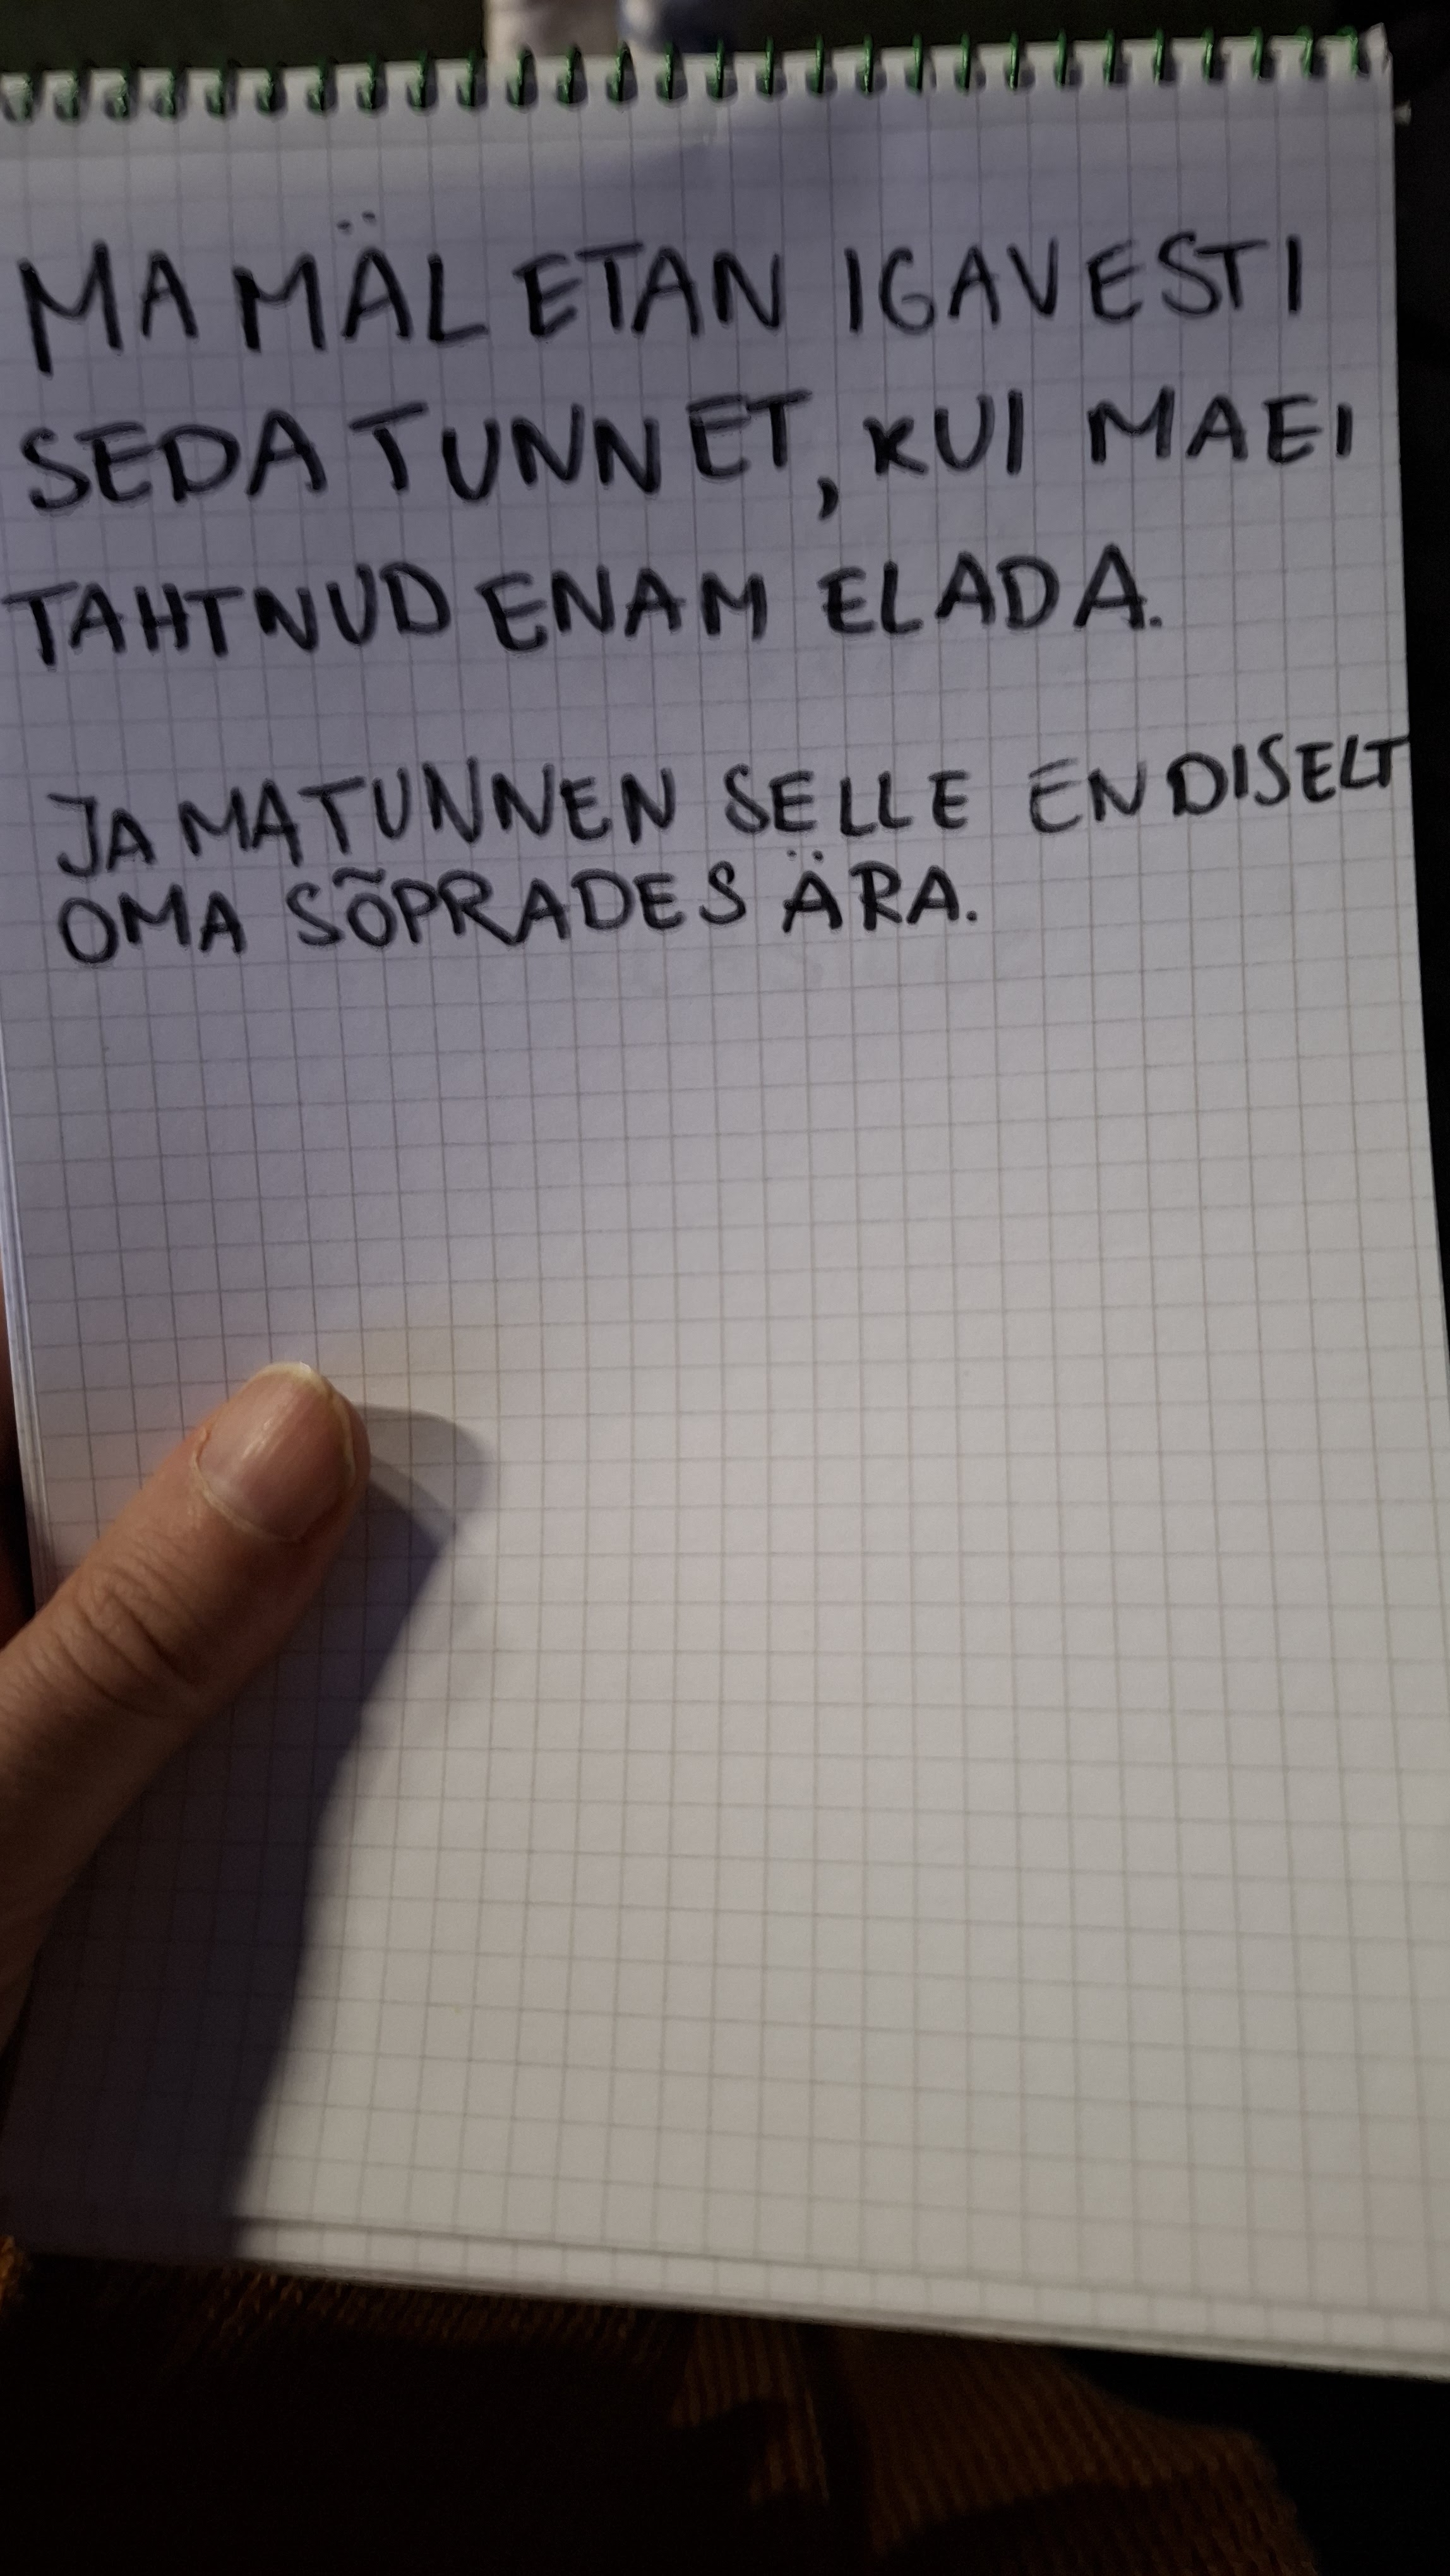 MA MÄLETAN IGAVESTI
SEDA TUNNET, KUI MA EI
TAHTNUD ENAM ELADA.
JA MA TUNNEN SELLE ENDISELT
OMA SÕPRADES ÄRA.